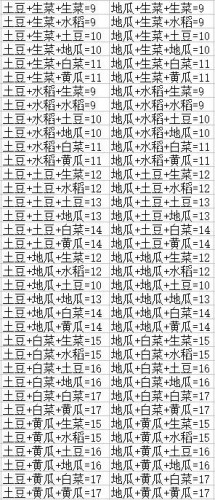 土豆+生菜+生菜=9 地瓜+生菜+生菜=9
土豆+生菜+水稻=9 地瓜+生菜+水稻=9
土豆+生菜+土豆=10 地瓜+生菜+土豆=10
土豆+生菜+地瓜=10 地瓜+生菜+地瓜=10
土豆+生菜+白菜=11 地瓜+生菜+白菜=11
土豆+生菜+黄瓜=11 地瓜+生菜+黄瓜=11
土豆+水稻+生菜=9 地瓜+水稻+生菜=9
土豆+水稻+水稻=9 地瓜+水稻+水稻=9
土豆+水稻+土豆=10 地瓜+水稻+土豆=10
土豆+水稻+地瓜=10 地瓜+水稻+地瓜=10
土豆+水稻+白菜=11 地瓜+水稻+白菜=11
土豆+水稻+黄瓜=11 地瓜+水稻+黄瓜=11
土豆+土豆+生菜=12 地瓜+土豆+生菜=12
土豆+土豆+水稻=12 地瓜+土豆+水稻=12
土豆+土豆+土豆=13 地瓜+土豆+土豆=13
土豆+土豆+地瓜=13 地瓜+土豆+地瓜=13
土豆+土豆+白菜=14 地瓜+土豆+白菜=14
土豆+土豆+黄瓜=14 地瓜+土豆+黄瓜=14
土豆+地瓜+生菜=12 地瓜+地瓜+生菜=12
土豆+地瓜+水稻=12 地瓜+地瓜+水稻=12
土豆+地瓜+土豆=10 地瓜+地瓜+土豆=10
土豆+地瓜+地瓜=13 地瓜+地瓜+地瓜=13
土豆+地瓜+白菜=14 地瓜+地瓜+白菜=14
土豆+地瓜+黄瓜=14 地瓜+地瓜+黄瓜=14
土豆+白菜+生菜=15 地瓜+白菜+生菜=15
土豆+白菜+水稻=15 地瓜+白菜+水稻=15
土豆+白菜+土豆=16 地瓜+白菜+土豆=16
土豆+白菜+地瓜=16 地瓜+白菜+地瓜=16
土豆+白菜+白菜=17 地瓜+白菜+白菜=17
土豆+白菜+黄瓜=17 地瓜+白菜+黄瓜=17
土豆+黄瓜+生菜=15 地瓜+黄瓜+生菜=15
土豆+黄瓜+水稻=15 地瓜+黄瓜+水稻=15
土豆+黄瓜+土豆=16 地瓜+黄瓜+土豆=16
土豆+黄瓜+地瓜=16 地瓜+黄瓜+地瓜=16
土豆+黄瓜+白菜=17 地瓜+黄瓜+白菜=17
土豆+黄瓜+黄瓜=17 地瓜+黄瓜+黄瓜=17